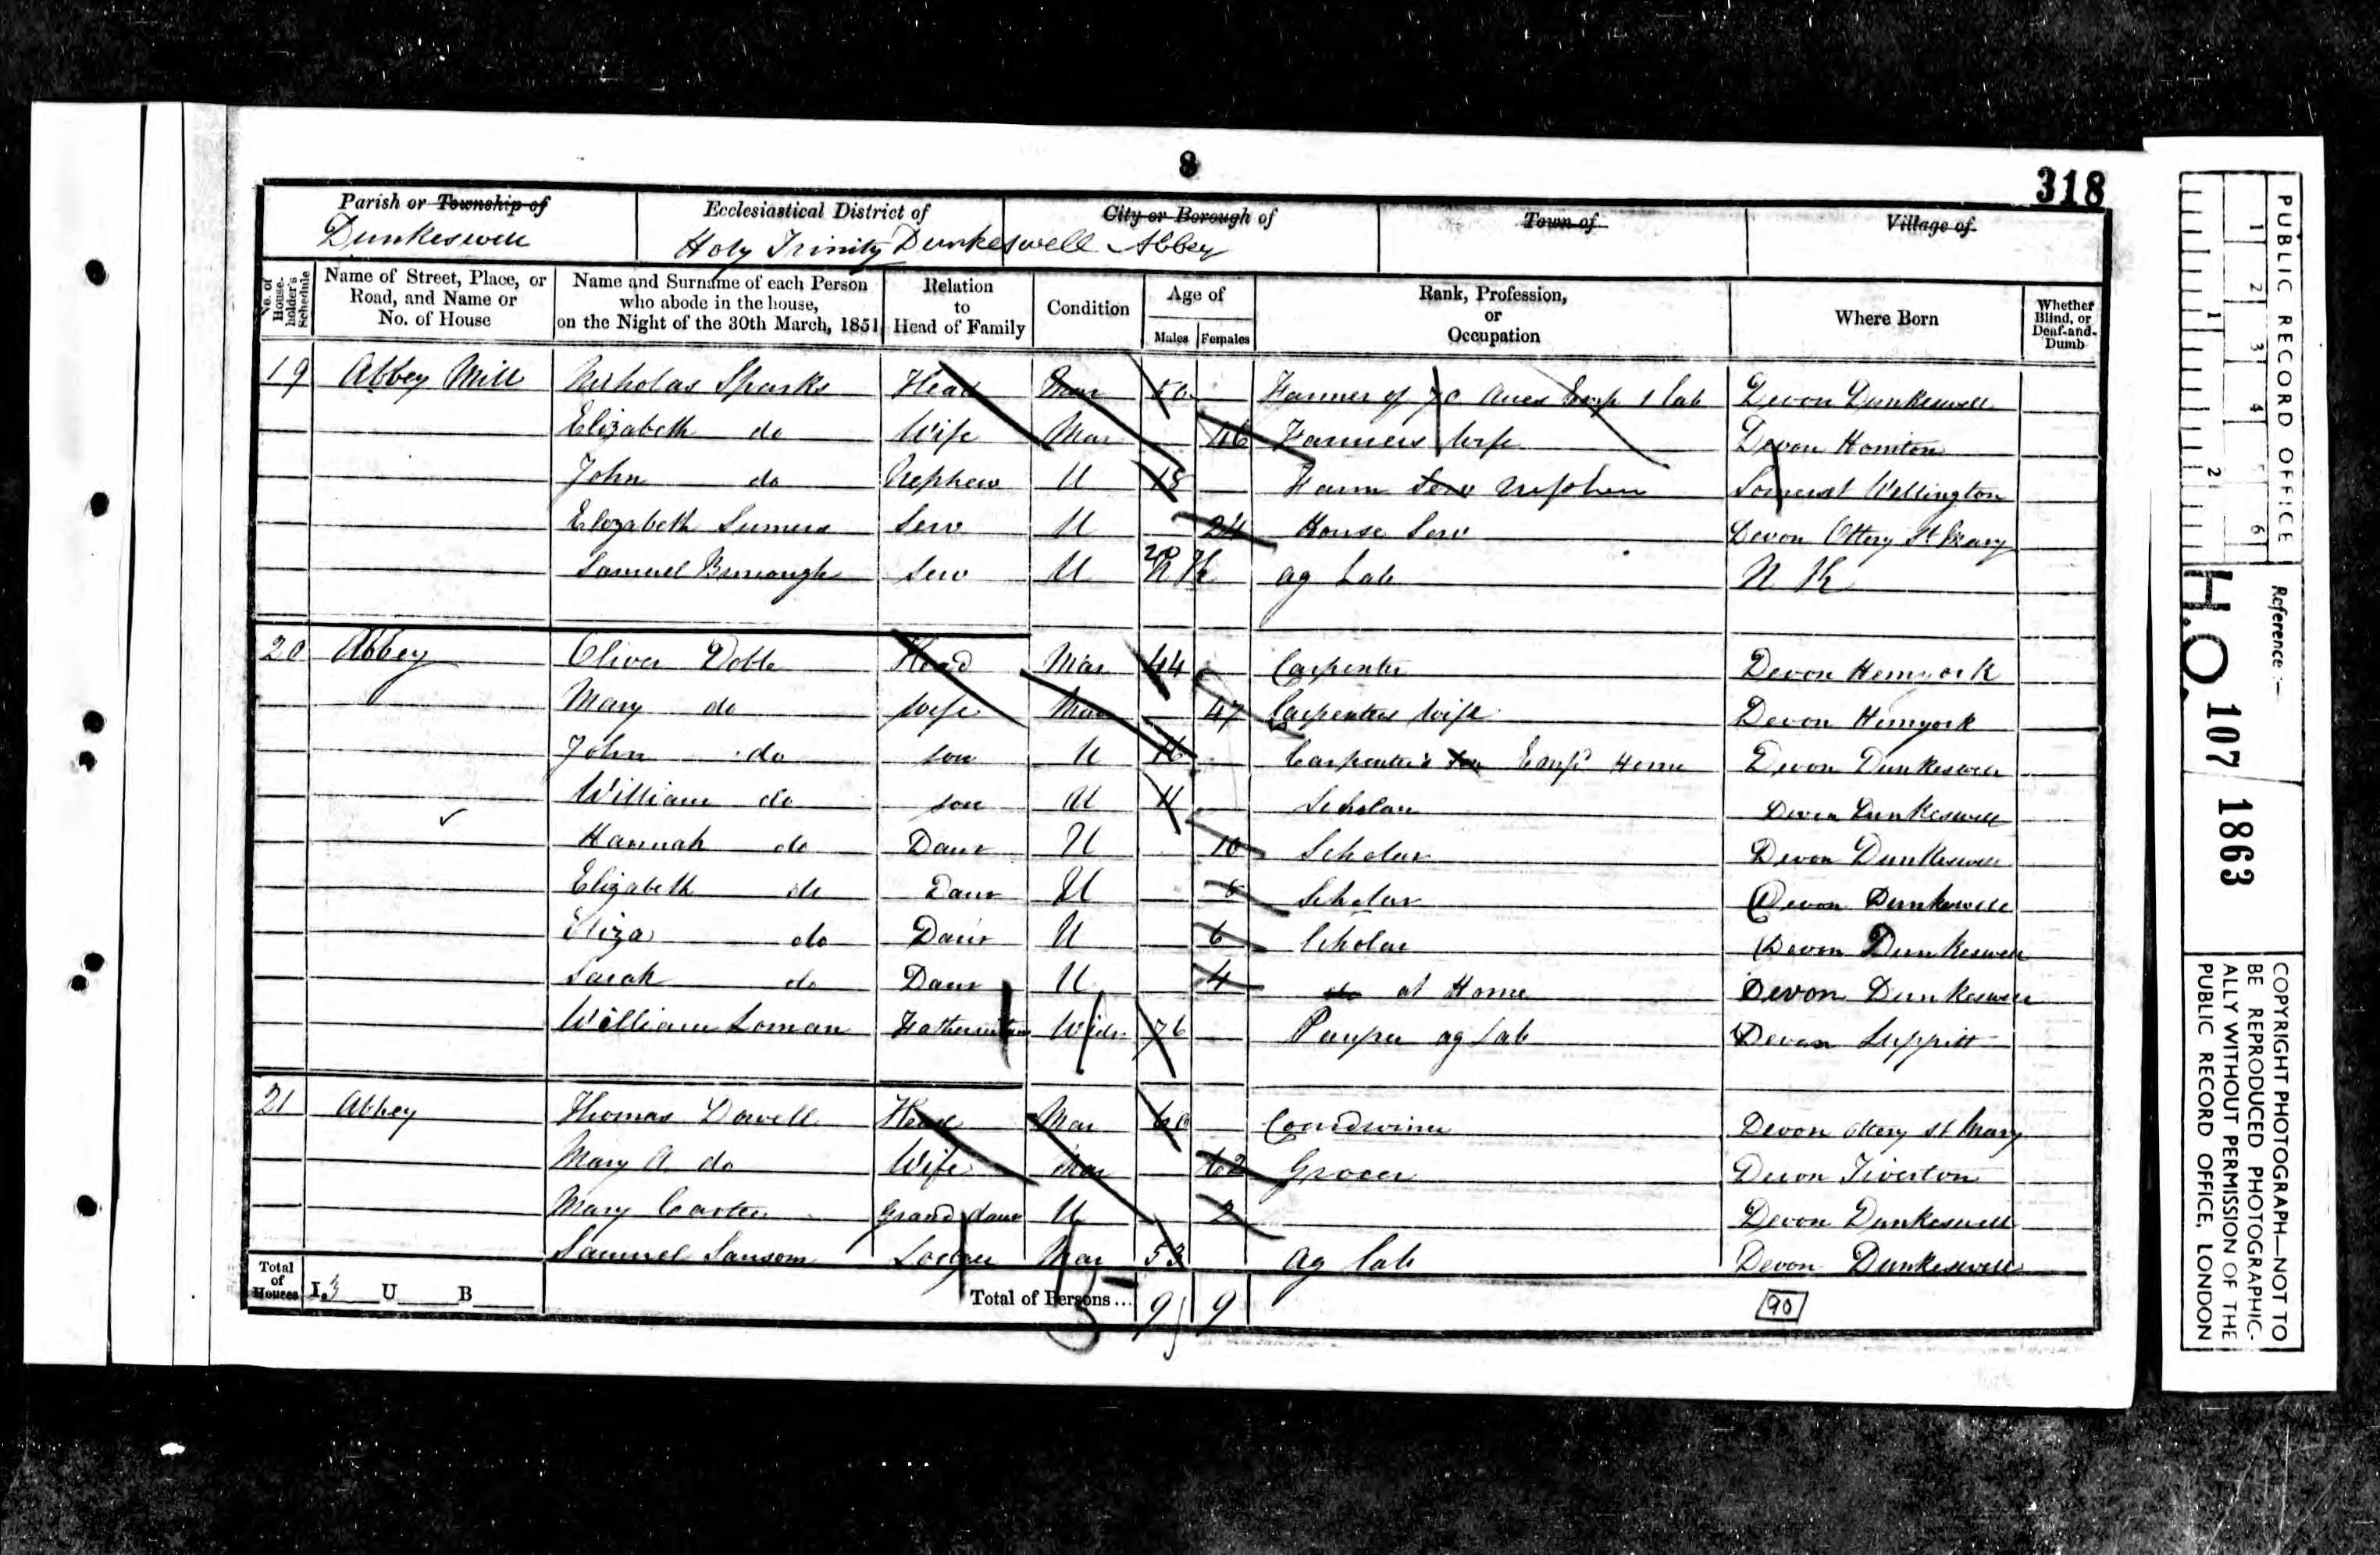 8
318
Parish or Township of
Dunkeswell
Ecclesiastical District of
Holy Trinity Dunkeswell Abbey
City or Borough of
Town of
Village of
No. of House-holder's Schedule
Name of Street, Place, or Road, and Name or No. of House
Name and Surname of each Person who abode in the house, on the Night of the 30th March, 1851
Relation to Head of Family
Condition
Age of
Males Females
Rank, Profession, or Occupation
Where Born
Whether Blind, or Deaf-and-Dumb
19 Abbey Mill Nicholas Sparks Head Mar 50 Farmer of 70 Acres Emp 1 lab Devon Dunkeswell
Elizabeth do Wife Mar 46 Farmers Wife Devon Honiton
John do Nephew U 18 Farm Serv Nephew Somerset Wellington
Elizabeth Serv U 24 House Serv Devon Ottery St Mary
Samuel Burrough Serv U 20 N K Ag Lab N K
20 Abbey Oliver Doble Head Mar 44 Carpenter Devon Hemyock
Mary do Wife Mar 47 Carpenters Wife Devon Hemyock
John do son U 16 Carpenter's Son Empd Home Devon Dunkeswell
William do son U 11 Scholar Devon Dunkeswell
Hannah do Daur U 10 Scholar Devon Dunkeswell
Elizabeth do Daur U Scholar Devon Dunkeswell
Eliza do Daur U 6 Scholar Devon Dunkeswell
Sarah do Daur U 4 do at Home Devon Dunkeswell
William Loman Father in law Widr 76 Pauper ag Lab Devon Luppitt
21 Abbey Thomas Dowell Head Mar 60 Cordwiner Devon Ottery St Mary
Mary A do Wife Mar 62 Grocer Devon Tiverton
Mary Carter Grand daur U 2 Devon Dunkeswell
Samuel Sansom Lodger Mar 53 Ag Lab Devon Dunkeswell
Total of Houses I. 3 U B
Total of Persons... 9 9
90
PUBLIC RECORD OFFICE
1 2 3 4 5 6
1 2
Reference:—
H.O. 107 1863
COPYRIGHT PHOTOGRAPH—NOT TO
BE REPRODUCED PHOTOGRAPHIC-
ALLY WITHOUT PERMISSION OF THE
PUBLIC RECORD OFFICE, LONDON